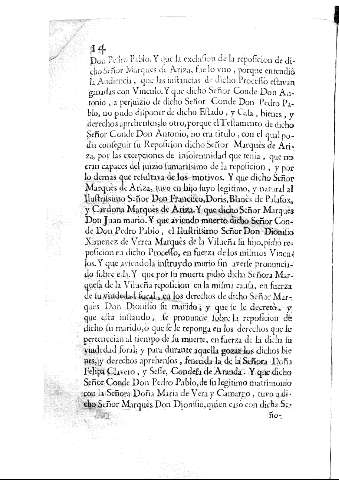 14
Don Pedro Pablo. Y que la exclusion de la reposicion de di-
cho Señor Marquès de Ariza, fue lo vno, porque entendiò
la Audiencia, que las instancias de dicho Processo estavan
ganadas con Vinculo. Y que dicho Señor Conde Don An-
tonio, a perjuizio de dicho Señor Conde Don Pedro Pa-
blo, no pudo disponer de dicho Estado, y Casa, bienes, y
derechos aprehensos; lo otro, porque el Testamento de dicho
Señor Conde Don Antonio, no era titulo, con el qual po-
dia conseguir su Reposicion dicho Señor Marquès de Ari-
za, por las excepciones de insolemnidad que tenia, que no
eran capaces del juizio sumarissimo de la reposicion, y por
lo demas que resultava de los motivos. Y que dicho Señor
Marquès de Ariza, tuvo en hijo suyo legitimo, y natural al
Ilustrissimo Señor Don Francisco, Doris, Blanes de Palafox,
y Cardona Marquès de Ariza. Y que dicho Señor Marquès
Don Juan murio. Y que aviendo muerto dicho Señor Con-
de Don Pedro Pablo, el Ilustrissimo Señor Don Dionisio
Ximenez de Verea Marquès de la Vilueña su hijo, pidio re-
posicion en dicho Processo, en fuerza de los mismos Vincu-
los. Y que aviendola instruydo murio sin averse pronuncia-
do sobre ella. Y que por su muerte pidiò dicha Señora Mar-
quesa de la Vilueña reposicion en la misma causa, en fuerza
de su viudedad foral, en los derechos de dicho Señor Mar-
quès Don Dionisio su marido; y que se le decretò, y
que esta instando, se pronuncie sobre la reposicion de
dicho su marido, ò que se le reponga en los derechos que le
pertenecian al tiempo de su muerte, en fuerza de la dicha su
viudedad foral; y para durante aquella gozar los dichos bie-
nes, y derechos aprehensos, fenecida la de la Señora Doña
Felipa Clavero, y Sesse, Condesa de Aranda. Y que dicho
Señor Conde Don Pedro Pablo, de su legitimo matrimonio
con la Señora Doña Maria de Vera y Camargo, tuvo a di-
cho Señor Marquès Don Dionisio, quien casò con dicha Se-
ño-